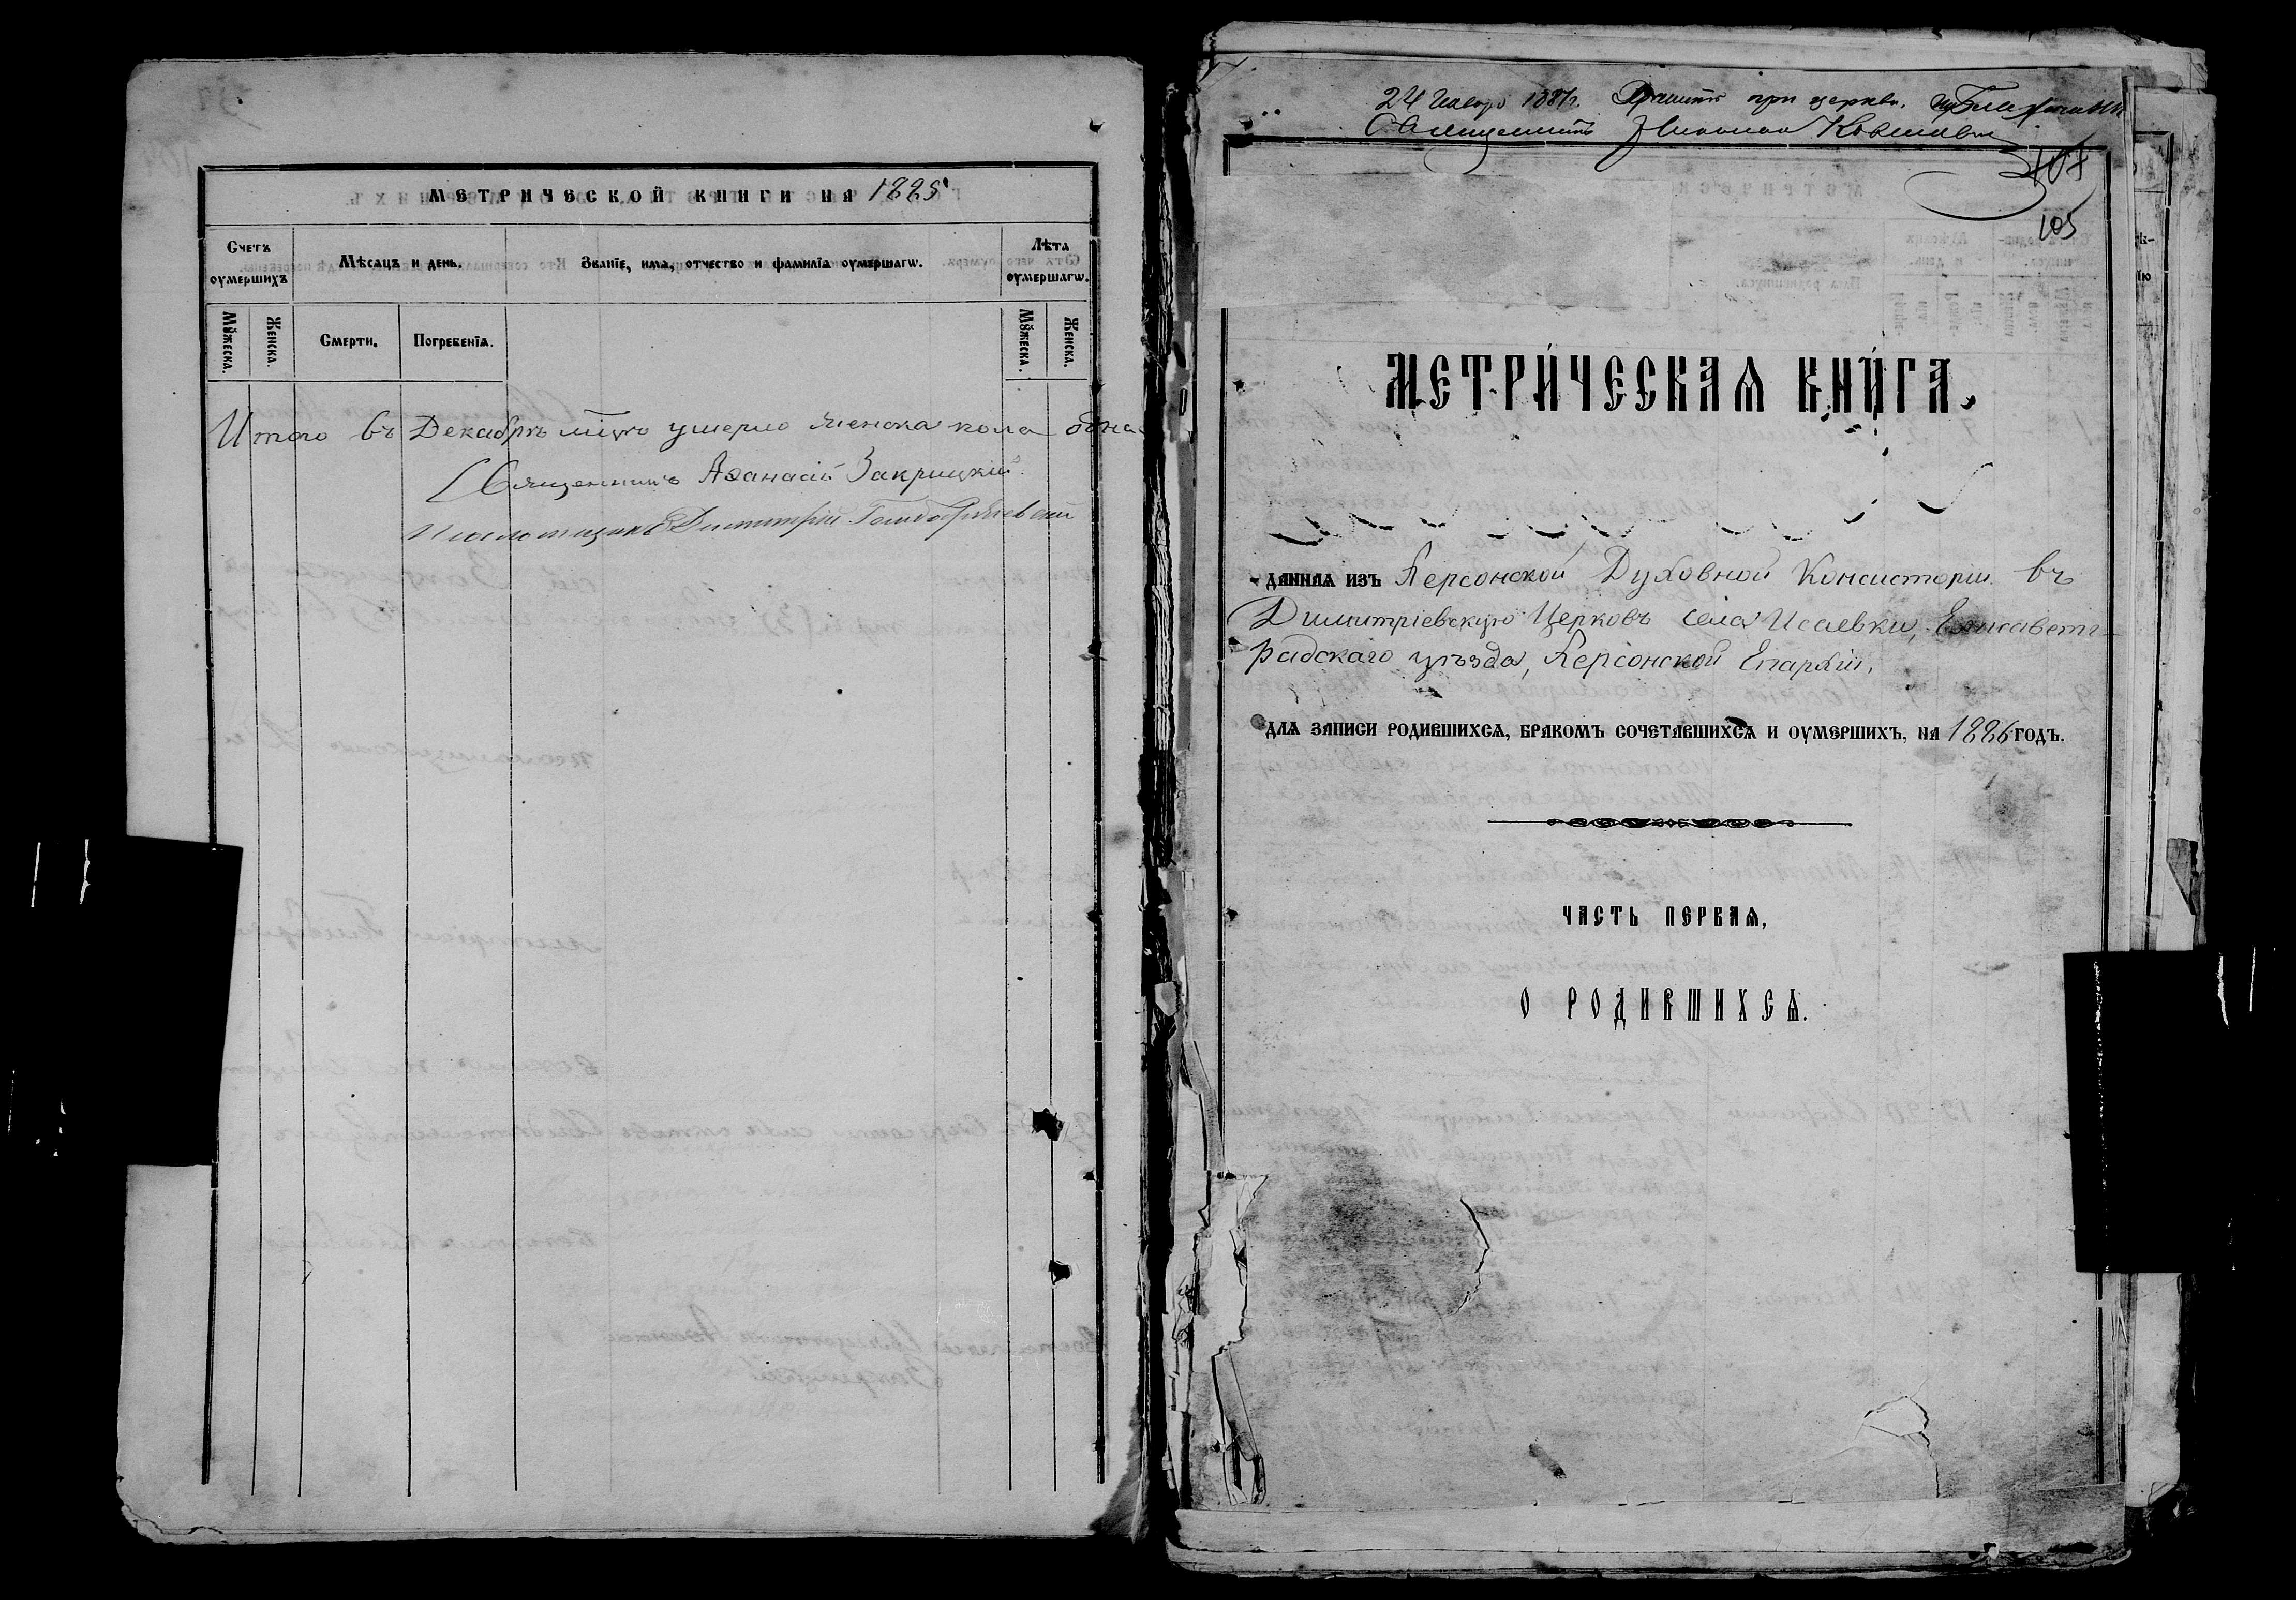 МЕТРИЧЕСКОЙ КНИГИ НА 1885
Счетъ оумершихъ
Мѣсяцъ и день.
Званїе, имѧ, отчество и фамилїа оумершагѡ.
Лѣта оумершагѡ.
Мꙋжеска.
Женска.
Смерти.
Погребенїѧ.
Мꙋжеска.
Женска.
Итого въ Декабрѣ мцѣ умерло женска пола одна
Священникъ Аѳанасій Закрицкій
Псаломщикъ Димитрій
24 Января 1887г. Хранить при церкви.
Священникъ Николай
107
105
МЕТРИ́ЧЕСКАѦ КНИ́ГА,
даннаѧ изъ Херсонской Духовной Консисторіи въ
Димитріевскую Церковь села Исаевки, Елисаветг-
радскаго уѣзда, Херсонской Епархіи,
длѧ записи родившихсѧ, бракомъ сочетавшихсѧ и оумершихъ, на 1886 годъ.
ЧАСТЬ ПЕРВАѦ,
О РОДИВШИХСѦ.